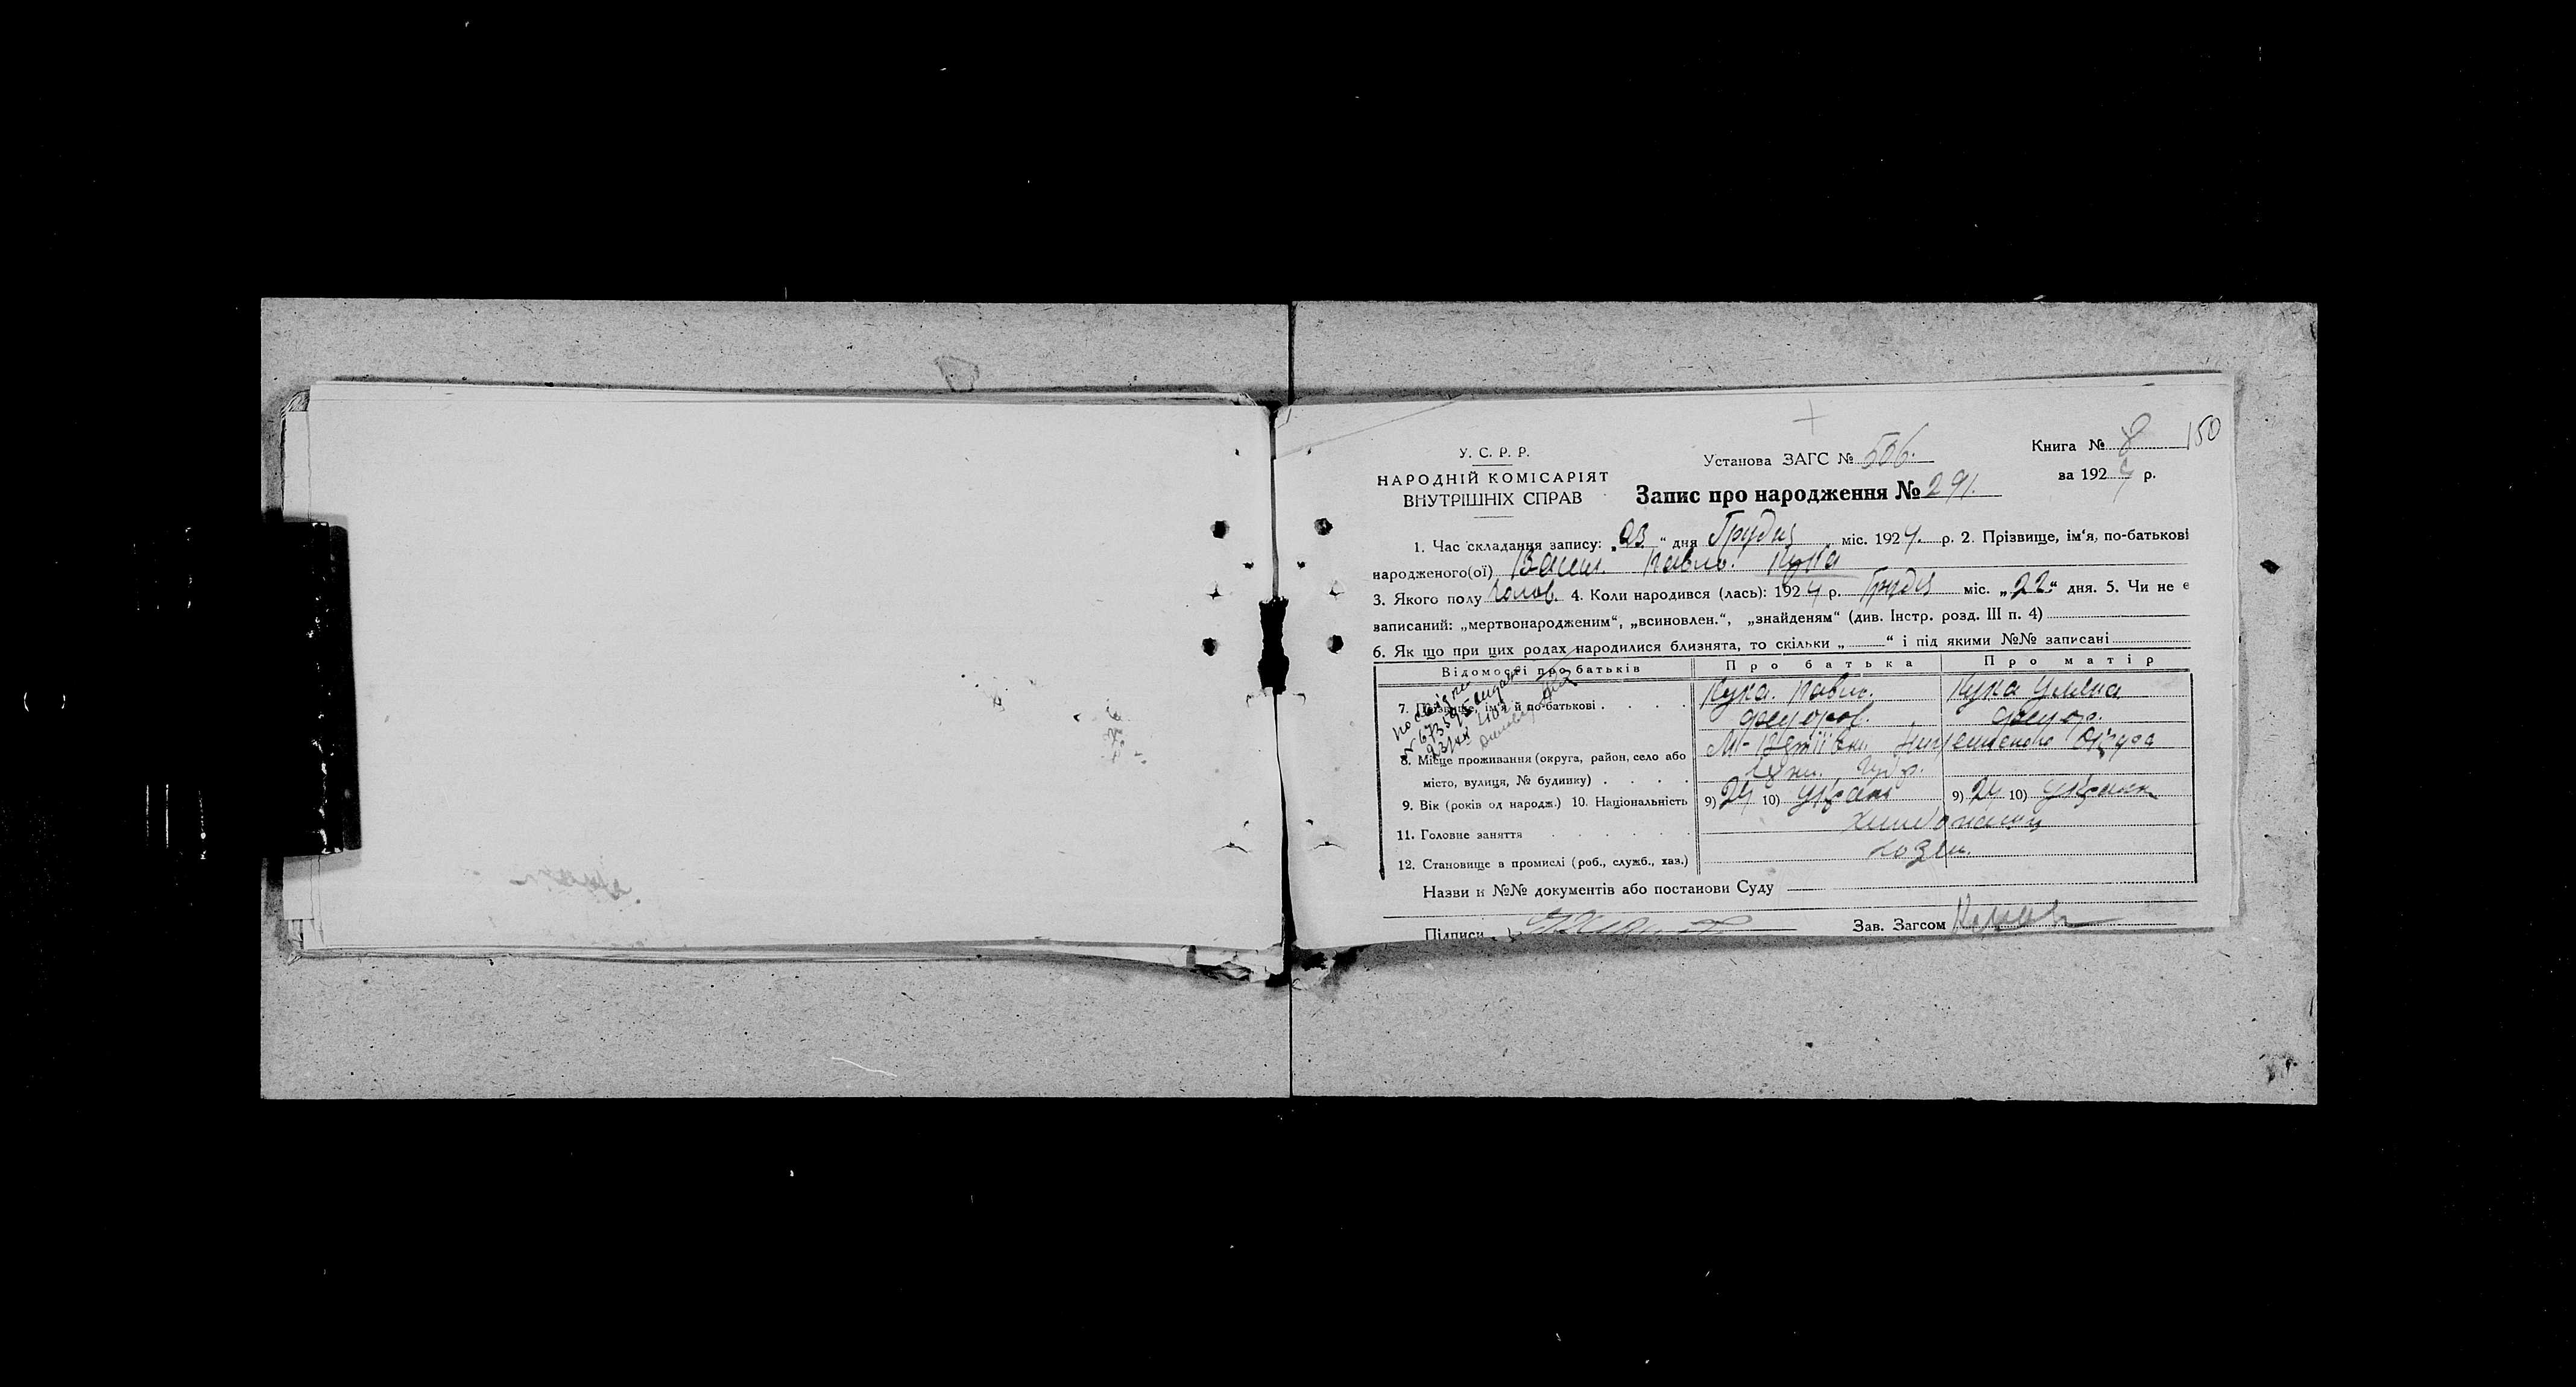 150
У. С. Р. Р.
НАРОДНІЙ КОМІСАРІЯТ
ВНУТРІШНІХ СПРАВ
Установа ЗАГС № 506.
Книга № 8
за 1924 р.
Запис про народження № 291.
1. Час складання запису: „23“ дня Грудня міс. 1924. р. 2. Прізвище, ім‘я, по-батькові
народженого(ої) Васил. Павло. Кука
3. Якого полу Чолов. 4. Коли народився (лась): 1924 р. Грудня міс. „22“ дня. 5. Чи не є
записаний: „мертвонародженим“, „всиновлен.“, „знайденям“ (див. Інстр. розд. III п. 4)
6. Як що при цих родах народилися близнята, то скільки „ “ і під якими №№ записані
Відомості про батьків Про батька Про матір
7. Прізвище, ім‘я й по-батькові Кука. Павло. Кука Уляна
Федоров. Федор.
8. Місце проживання (округа, район, село або
місто, вулиця, № будинку)
9. Вік (років од народж.) 10. Національність 9) 24 10) Україн 9) 24 10) Україн
11. Головне заняття
12. Становище в промислі (роб., служб., хаз.)
Назви й №№ документів або постанови Суду
Підписи
Зав. Загсом